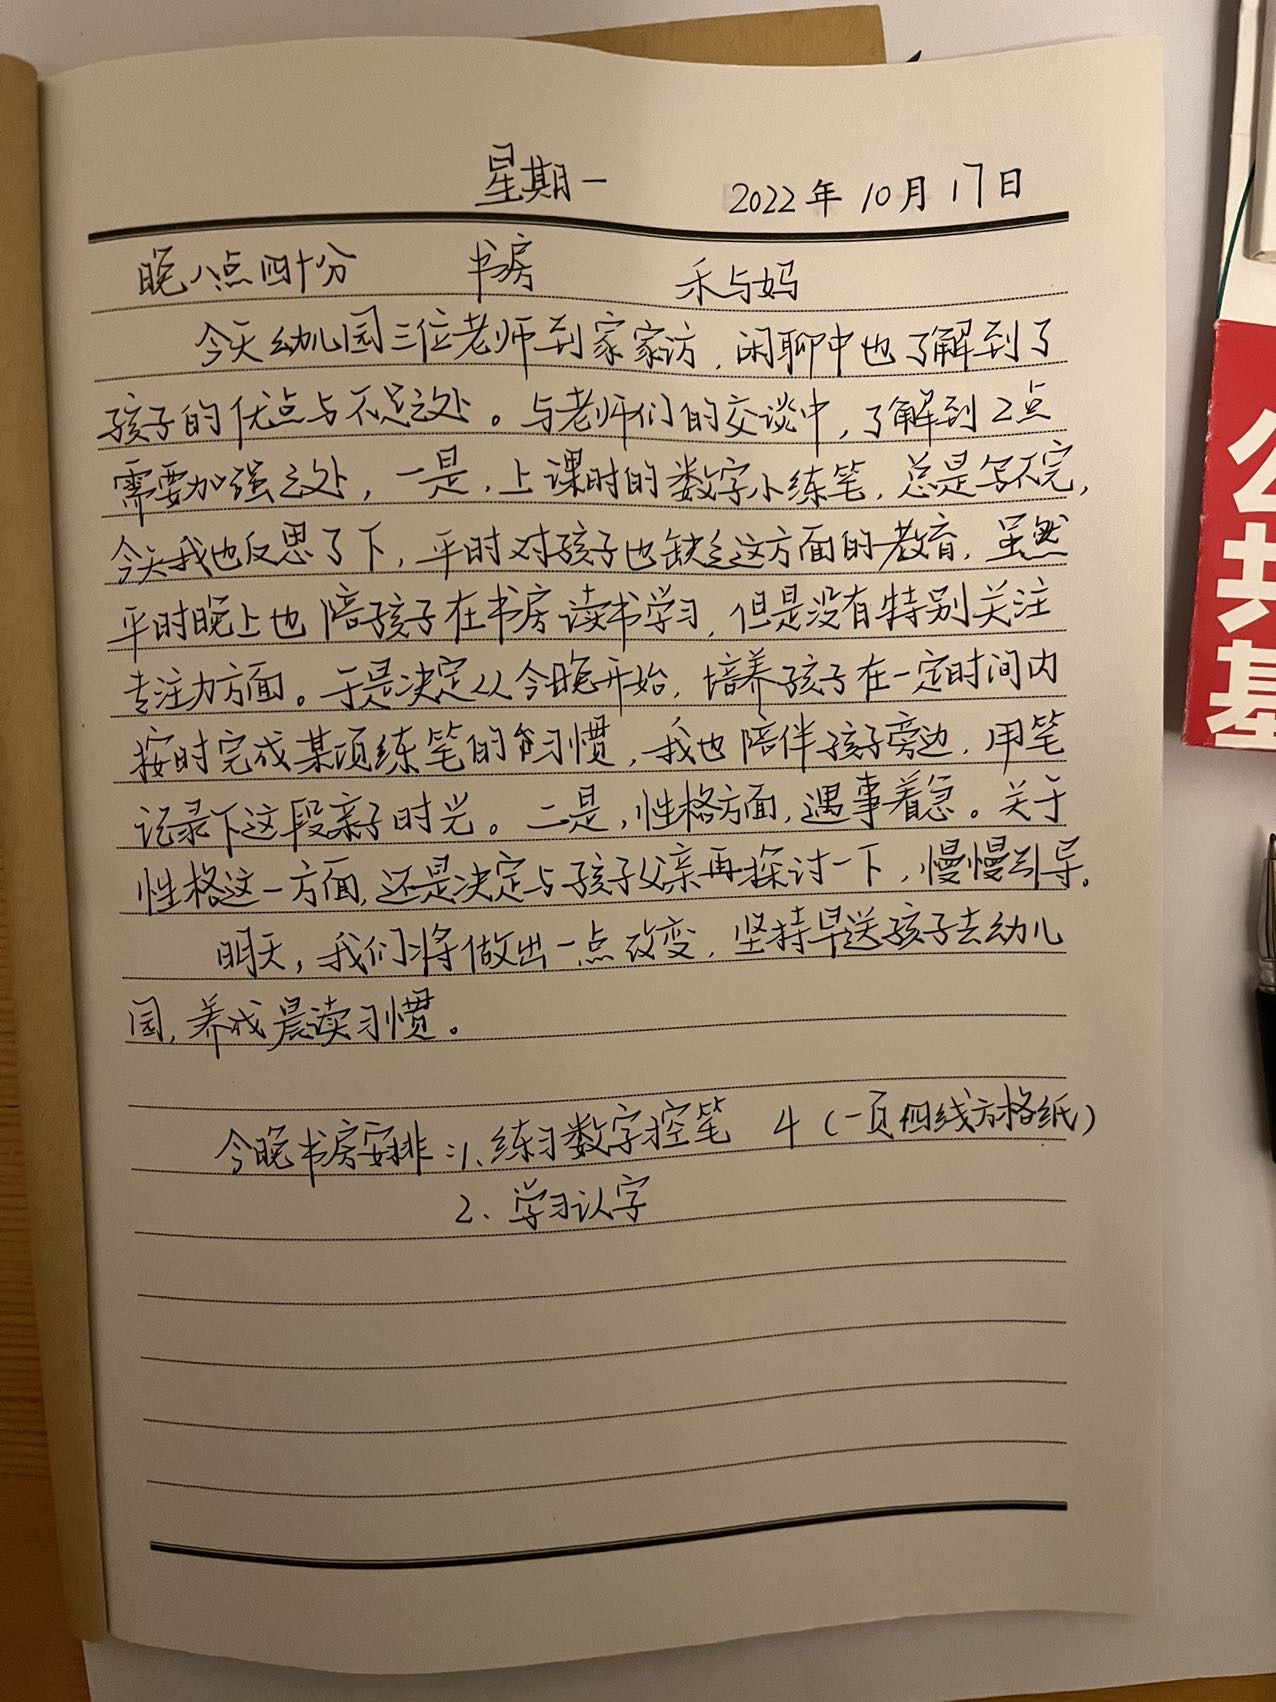 星期一
2022年10月17日
晚八点四十分 书房 禾与妈
今天幼儿园三位老师到家家访，闲聊中也了解到了
孩子的优点与不足之处。与老师们的交谈中，了解到2点
需要加强之处，一是，上课时的数字小练笔，总是写不完，
今天我也反思了下，平时对孩子也缺乏这方面的教育，虽然
平时晚上也陪孩子在书房读书学习，但是没有特别关注
专注力方面。于是决定从今晚开始，培养孩子在一定时间内
按时完成某项练笔的习惯，我也陪伴孩子旁边，用笔
记录下这段亲子时光。二是，性格方面，遇事着急。关于
性格这一方面，还是决定与孩子父亲再探讨一下，慢慢引导。
明天，我们将做出一点改变，坚持早送孩子去幼儿
园，养成晨读习惯。
今晚书房安排：1、练习数字控笔 4（一页四线方格纸）
2、学习认字
公共基